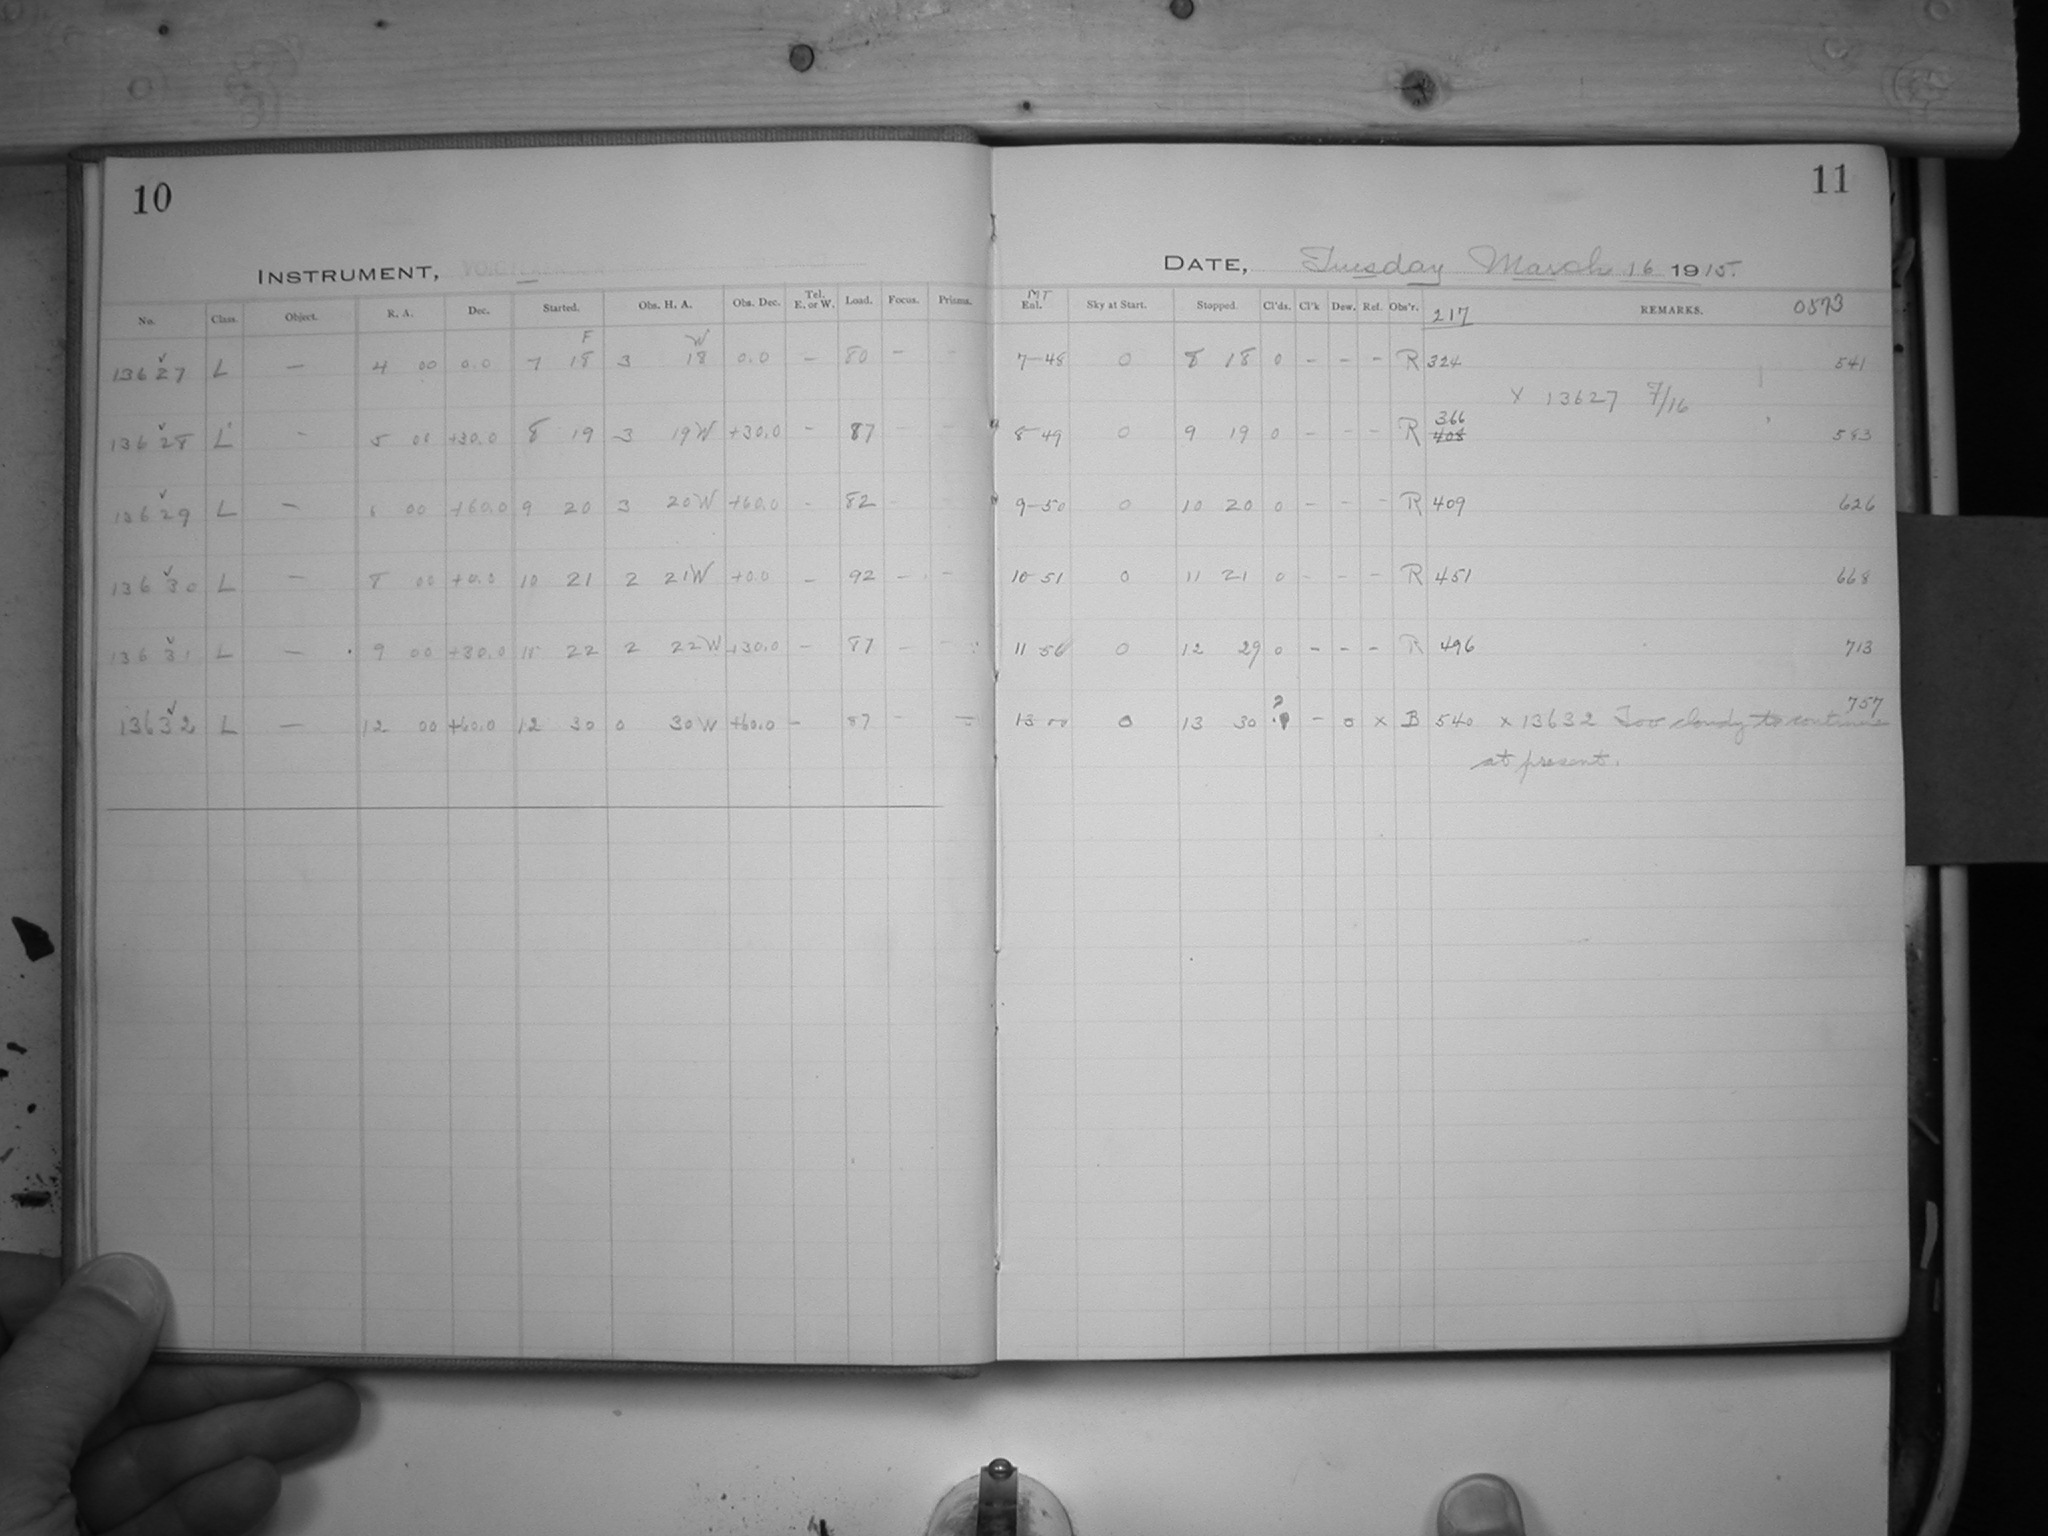 10
INSTRUMENT,
No. Class. Object. R. A. Dec. Started. Obs. H. A. Obs. Dec. Tel. E. or W. Load. Focus. Prisms.
F W
13627 L — 4 00 0.0 7 18 3 18 0.0 — 80 — —
13628 L — 5 00 +30.0 8 19 3 19W +30.0 — 87
13629 L — 6 00 +60.0 9 20 3 20W +60.0 — 82
13630 L — 8 00 +0.0 10 21 2 21W +0.0 — 92 — —
13631 L — 9 00 +30.0 11 22 2 22W +30.0 — 87 — —
13632 L — 12 00 +60.0 12 30 0 30W +60.0 — 87 — —
11
DATE, Tuesday March 16 1915.
MT
Eal. Sky at Start. Stopped. Cl'ds. Cl'k Dew. Ref. Obs'r. 217 REMARKS. 0573
7-48 0 8 18 0 — — — R 324 541
X 13627 7/16
366
8 49 0 9 19 0 — — — R 408 583
9-50 0 10 20 0 — — — R 409 626
10 51 0 11 21 0 — — — R 451 668
11 56 0 12 29 0 — — — R 496 713
757
13 00 0 13 30 ? — 0 x B 540 x 13632 Too cloudy to continue
at present.